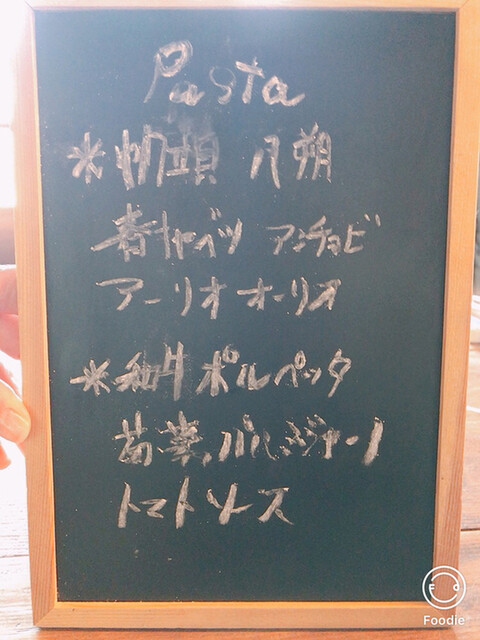 Pasta
* 八朔
春キャベツ アンチョビ
アーリオ オーリオ
*和牛 ポルペッタ
パルミジャーノ
トマトソース
Foodie